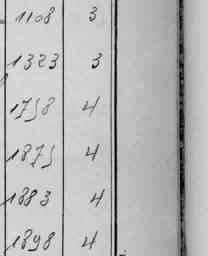 1108 3
1323 3
1758 4
1875 4
1883 4
1898 4